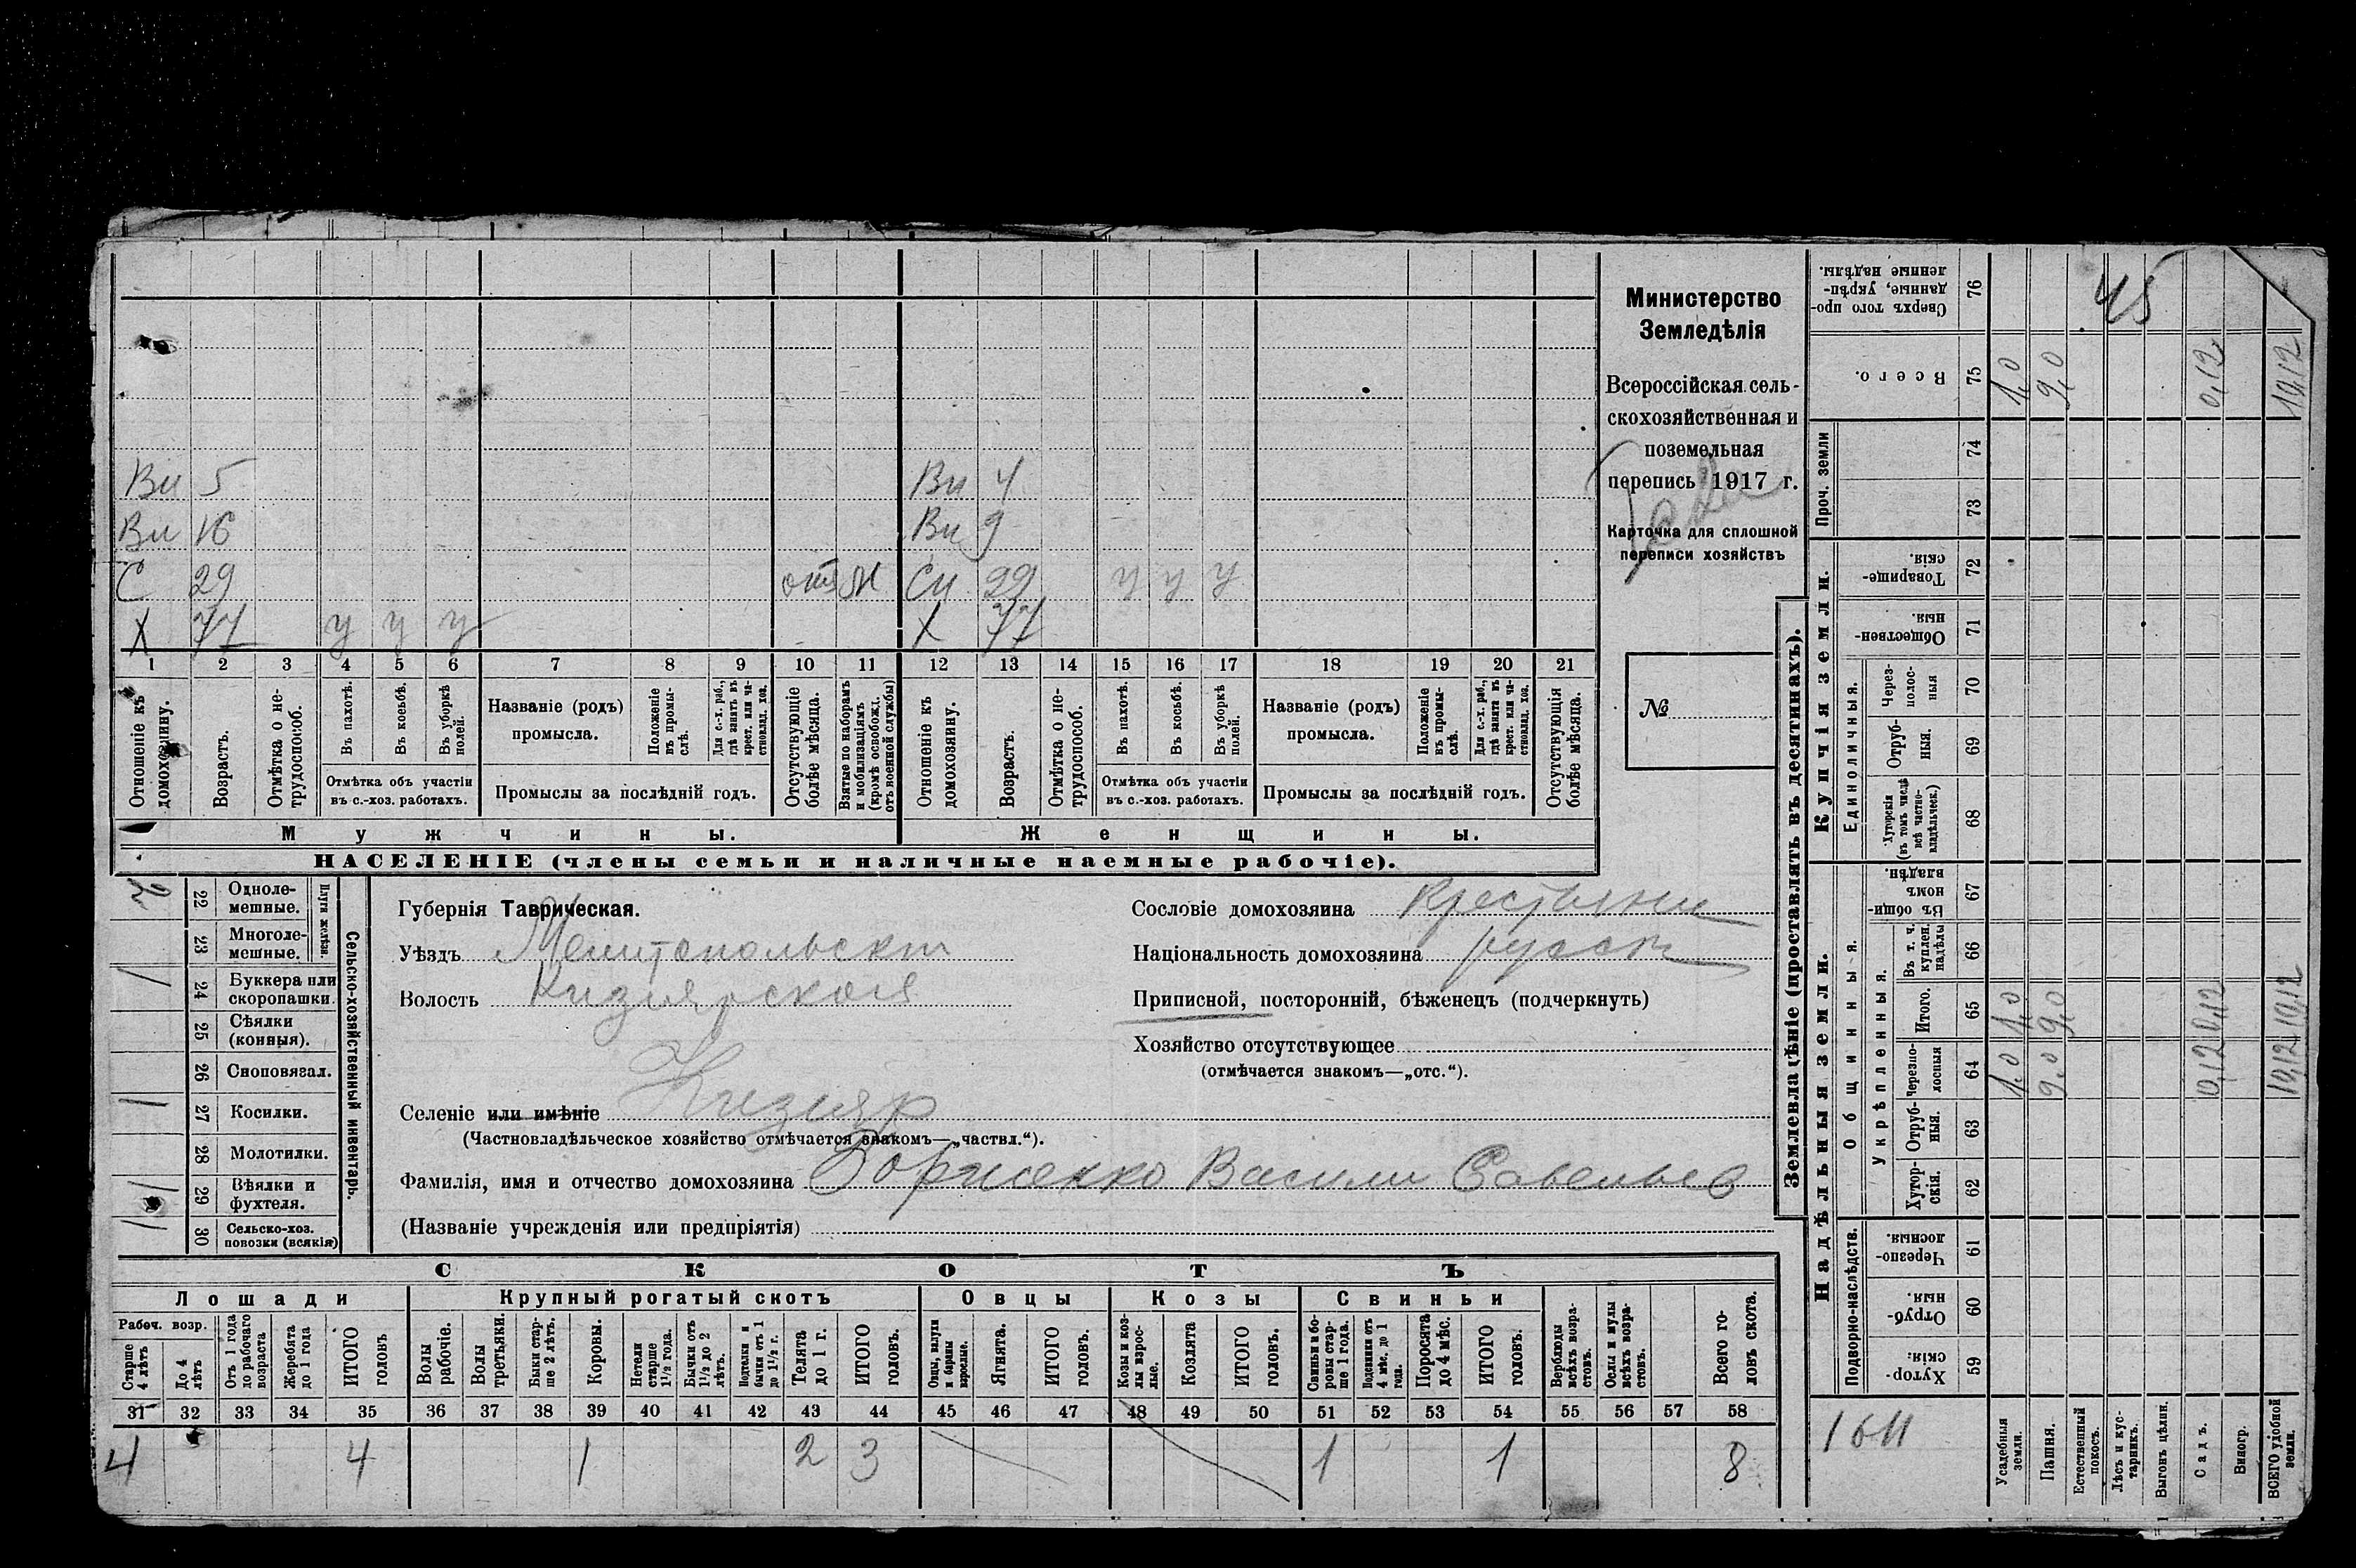 Ви 5 Ви 4
Вн 16 Вн 9
С 29 отс Сн 29 у у у
Х 77 у у у Х 77
1 2 3 4 5 6 7 8 9 10 11 12 13 14 15 16 17 18 19 20 21
Отношеніе къ домохозяину.
Возрастъ.
Отмѣтка о не-трудоспособ.
Въ пахотѣ.
Въ косьбѣ.
Въ уборкѣ полей.
Отмѣтка объ участіи
въ с.-хоз. работахъ.
Названіе (родъ)
промысла.
Положеніе въ промы-слѣ.
Для с.-х. раб., гдѣ занятъ въ крест. или ча-стновлад. хоз.
Промыслы за послѣдній годъ.
Отсутствующіе болѣе мѣсяца.
Взятые по наборамъ и мобилизаціямъ (кромѣ освобожд. отъ военной службы)
Отношеніе къ домохозяину.
Возрастъ.
Отмѣтка о не-трудоспособ.
Въ пахотѣ.
Въ косьбѣ.
Въ уборкѣ полей.
Отмѣтка объ участіи
въ с.-хоз. работахъ.
Названіе (родъ)
промысла.
Положеніе въ промы-слѣ.
Для с.-х. раб., гдѣ занята въ крест. или ча-стновлад. хоз.
Промыслы за послѣдній годъ.
Отсутствующія болѣе мѣсяца.
Мужчины. Женщины.
НАСЕЛЕНІЕ (члены семьи и наличные наемные рабочіе).
Министерство
Земледѣлія
Всероссійская сель-
скохозяйственная и
поземельная
перепись 1917 г.
Карточка для сплошной
переписи хозяйствъ
№
22 Одноле-мешные.
23 Многоле-мешные.
Плуги желѣзн.
24 Буккера или скоропашки. 1
25 Сѣялки (конныя).
26 Сноповязал.
27 Косилки. 1
28 Молотилки.
29 Вѣялки и фухтеля. 1
30 Сельско-хоз. повозки (всякія) 1
Сельско-хозяйственный инвентарь.
Губернія Таврическая.
Уѣздъ Мелитопольскій
Волость Кизіярская
Селеніе или имѣніе Кизіяр
(Частновладѣльческое хозяйство отмѣчается знакомъ—„частвл.“).
Фамилія, имя и отчество домохозяина Борисенко Василий Савельев
(Названіе учрежденія или предпріятія)
Сословіе домохозяина крестьянин
Національность домохозяина русск
Приписной, посторонній, бѣженецъ (подчеркнуть)
Хозяйство отсутствующее
(отмѣчается знакомъ—„отс.“).
СКОТЪ
Лошади Крупный рогатый скотъ Овцы Козы Свиньи
Рабоч. возр.
Старше 4 лѣтъ
До 4 лѣтъ
Отъ 1 года до рабочаго возраста
Жеребята до 1 года
ИТОГО головъ
Волы рабочіе.
Волы третьяки.
Быки стар-ше 2 лѣтъ.
Коровы.
Нетели старше 1½ года.
Бычки отъ 1½ до 2 лѣтъ.
Подтелки и бычки отъ 1 до 1½ г.
Телята до 1 г.
ИТОГО головъ.
Овцы, валухи и бараны взрослые.
Ягнята.
ИТОГО головъ.
Козы и коз-лы взрос-лые.
Козлята
ИТОГО головъ.
Свиньи и бо-ровы стар-ше 1 года.
Подсвинки отъ 4 мѣс. до 1 года.
Поросята до 4 мѣс.
ИТОГО головъ.
Верблюды всѣхъ возра-стовъ.
Ослы и мулы всѣхъ возра-стовъ.
Всего го-ловъ скота.
31 32 33 34 35 36 37 38 39 40 41 42 43 44 45 46 47 48 49 50 51 52 53 54 55 56 57 58
4 4 1 2 3 1 1 8
Землевладѣніе (проставлять въ десятинахъ).
Надѣльныя земли. Купчія земли. Проч. земли
Подворно-наслѣдств.
Общинныя.
Укрѣпленныя.
Единоличныя.
Сверхъ того про-данные, укрѣп-ленные надѣлы. 76 45
Всего. 75 1,0 9,0 0,12 10,12
74
73
Товарище-скія. 72
Обществен-ныя. 71
Через-полос-ныя 70
Отруб-ныя. 69
Хуторскія (въ томъ числѣ всѣ частно-владѣльческ.) 68
Въ общин-номъ владѣн. 67
Въ т. ч. куплен. надѣлы 66
Итого. 65 1,0 9,0 0,12 10,12
Черезпо-лосныя 64 1,0 9,0 0,12 10,12
Отруб-ныя. 63
Хутор-скія. 62
Черезпо-лосныя. 61
Отруб-ныя. 60
Хутор-скія. 59
1611
Усадебныя земли.
Пашня.
Естественный покосъ.
Лѣсъ и кус-тарникъ.
Выгонъ цѣлин.
Садъ.
Виногр.
ВСЕГО удобной земли.